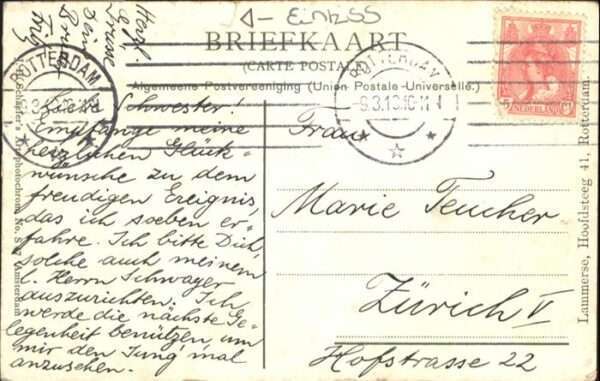 Einzss
BRIEFKAART
(CARTE POSTALE)
Algemeene Postvereeniging (Union Postale Universelle.)
ROTTERDAM
ROTTERDAM
9.3.13.10-11
5 Ct
NEDERLAND
Herzl.
Schwester!
Empfange meine
herzlichen Glück-
wünsche zu dem
freudigen Ereignis,
das ich soeben er-
fahre. Ich bitte Dich,
solche auch meinem
l. Herrn Schwager
auszurichten. Ich
werde die nächste Ge-
legenheit benützen, um
mir den Jung mal
anzusehen.
Frau
Marie Teucher
Zürich V
Hofstrasse 22
Lammerse, Hoofdsteeg 41, Rotterdam.
Amsterdam